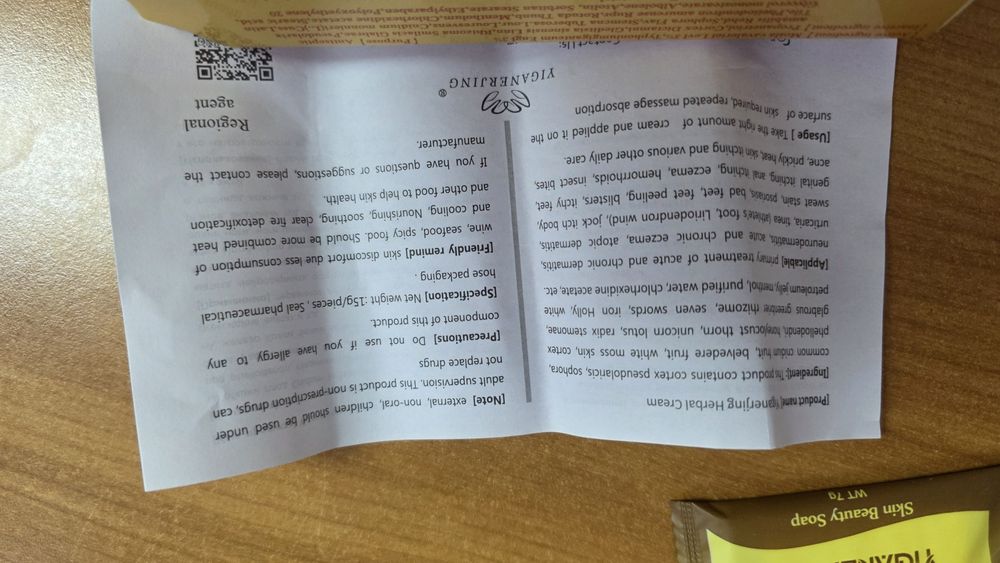 [Product name] Yiganerjing Herbal Cream
[Ingredient] This product contains cortex pseudolaricis, sophora,
common cnidium fruit, belvedere fruit, white moss skin, cortex
phellodendri, honeylocust thorn, unicorn lotus, radix stemonae,
glabrous greenbrier rhizome, seven swords, iron Holly, white
petroleum jelly, menthol, purified water, chlorhexidine acetate, etc.
[Applicable] primary treatment of acute and chronic dermatitis,
neurodermatitis, acute and chronic eczema, atopic dermatitis,
urticaria, tinea (athlete's foot, Liriodendron wind), jock itch body,
sweat stain, psoriasis, bad feet, feet peeling, blisters, itchy feet,
genital itching, anal itching, eczema, hemorrhoids, insect bites,
acne, prickly heat, skin itching and various other daily care.
[Usage ] Take the right amount of cream and applied it on the
surface of skin required, repeated massage absorption
[Note] external, non-oral, children should be used under
adult supervision. This product is non-prescription drugs, can,
not replace drugs
[Precautions] Do not use if you have allergy to any
component of this product.
[Specification] Net weight :15g/pieces , Seal pharmaceutical
hose packaging .
[Friendly remind] skin discomfort due less consumption of
wine, seafood, spicy food. Should be more combined heat
and cooling, Nourishing, soothing, clear fire detoxification
and other food to help skin health.
If you have questions or suggestions, please contact the
manufacturer.
YIGANERJING ®
Regional
agent
Contact Us:
Skin Beauty Soap
WT 7g